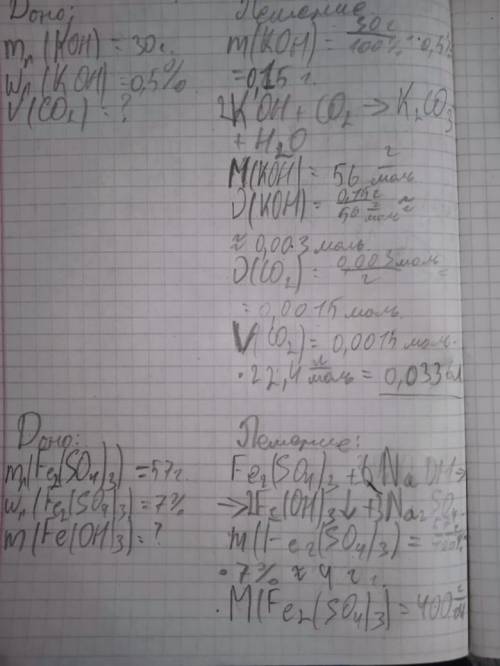 Дано:
mп(KOH) = 30г.
wп(KOH) = 0,5%
V(CO2) = ?
Решение
m(KOH) = 30г / 100% · 0,5%
= 0,15 г.
2KOH + CO2 → K2CO3
+ H2O
M(KOH) = 56 г/моль
ν(KOH) = 0,15г / 56 г/моль ≈
≈ 0,003 моль.
ν(CO2) = 0,003моль / 2 =
= 0,0015 моль.
V(CO2) = 0,0015 моль ·
· 22,4 л/моль = 0,0336л
Дано:
mп(Fe2(SO4)3) = 57г.
wп(Fe2(SO4)3) = 7%
m(Fe(OH)3) = ?
Решение:
Fe2(SO4)3 + 6NaOH →
→ 2Fe(OH)3↓ + 3Na2SO4
m(Fe2(SO4)3) = 57г / 100% ·
· 7% ≈ 4 г.
M(Fe2(SO4)3) = 400 г/моль